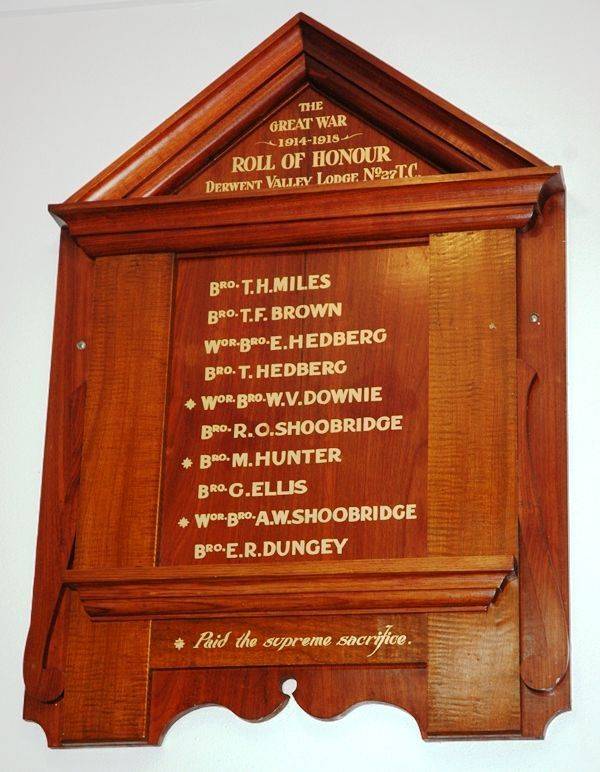 THE
GREAT WAR
1914-1918
ROLL OF HONOUR
DERWENT VALLEY LODGE No 27 T.C.
BRO. T.H. MILES
BRO. T.F. BROWN
WOR. BRO. E. HEDBERG
BRO. T. HEDBERG
* WOR. BRO. W.V. DOWNIE
BRO. R.O. SHOOBRIDGE
* BRO. M. HUNTER
BRO. G. ELLIS
* WOR. BRO. A.W. SHOOBRIDGE
BRO. E.R. DUNGEY
* Paid the supreme sacrifice.